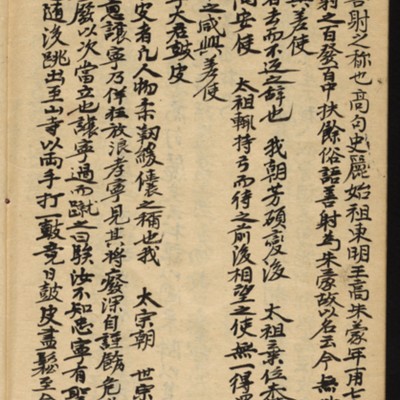 善射之称也高句史麗始祖東明王高朱蒙年甫七
射之百發百中扶餘俗語善射為朱蒙故以名云今無
興差使
者去而不返之辭也 我朝芳碩變後 太祖棄位
問安使 太祖輒持弓而待之前後相望之使無一得
之咸興差使
孝寧大君鼓皮
皮者凡人物柔韌緩儴之稱也我 太宗朝 世宗
意讓寧乃佯狂放浪孝寧見其將廢深自謹飭危
廢以次當立也讓寧過而蹴之曰騃汝不知忠寧有聖
隨後跳出至山寺以兩手打一鼓竟日鼓皮盡鬆至今